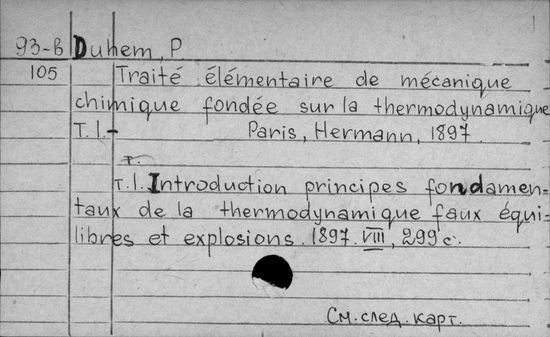 1
93-B Duhem, P
105 Traité élémentaire de mécanique
chimique fondée sur la thermodynamique
T. I.- Paris, Hermann, 1897.
т.
т.I. Introduction principes fondamen-
taux de la thermodynamique faux équi-
libres et explosions. 1897. VIII, 299 c.
См. след. карт.